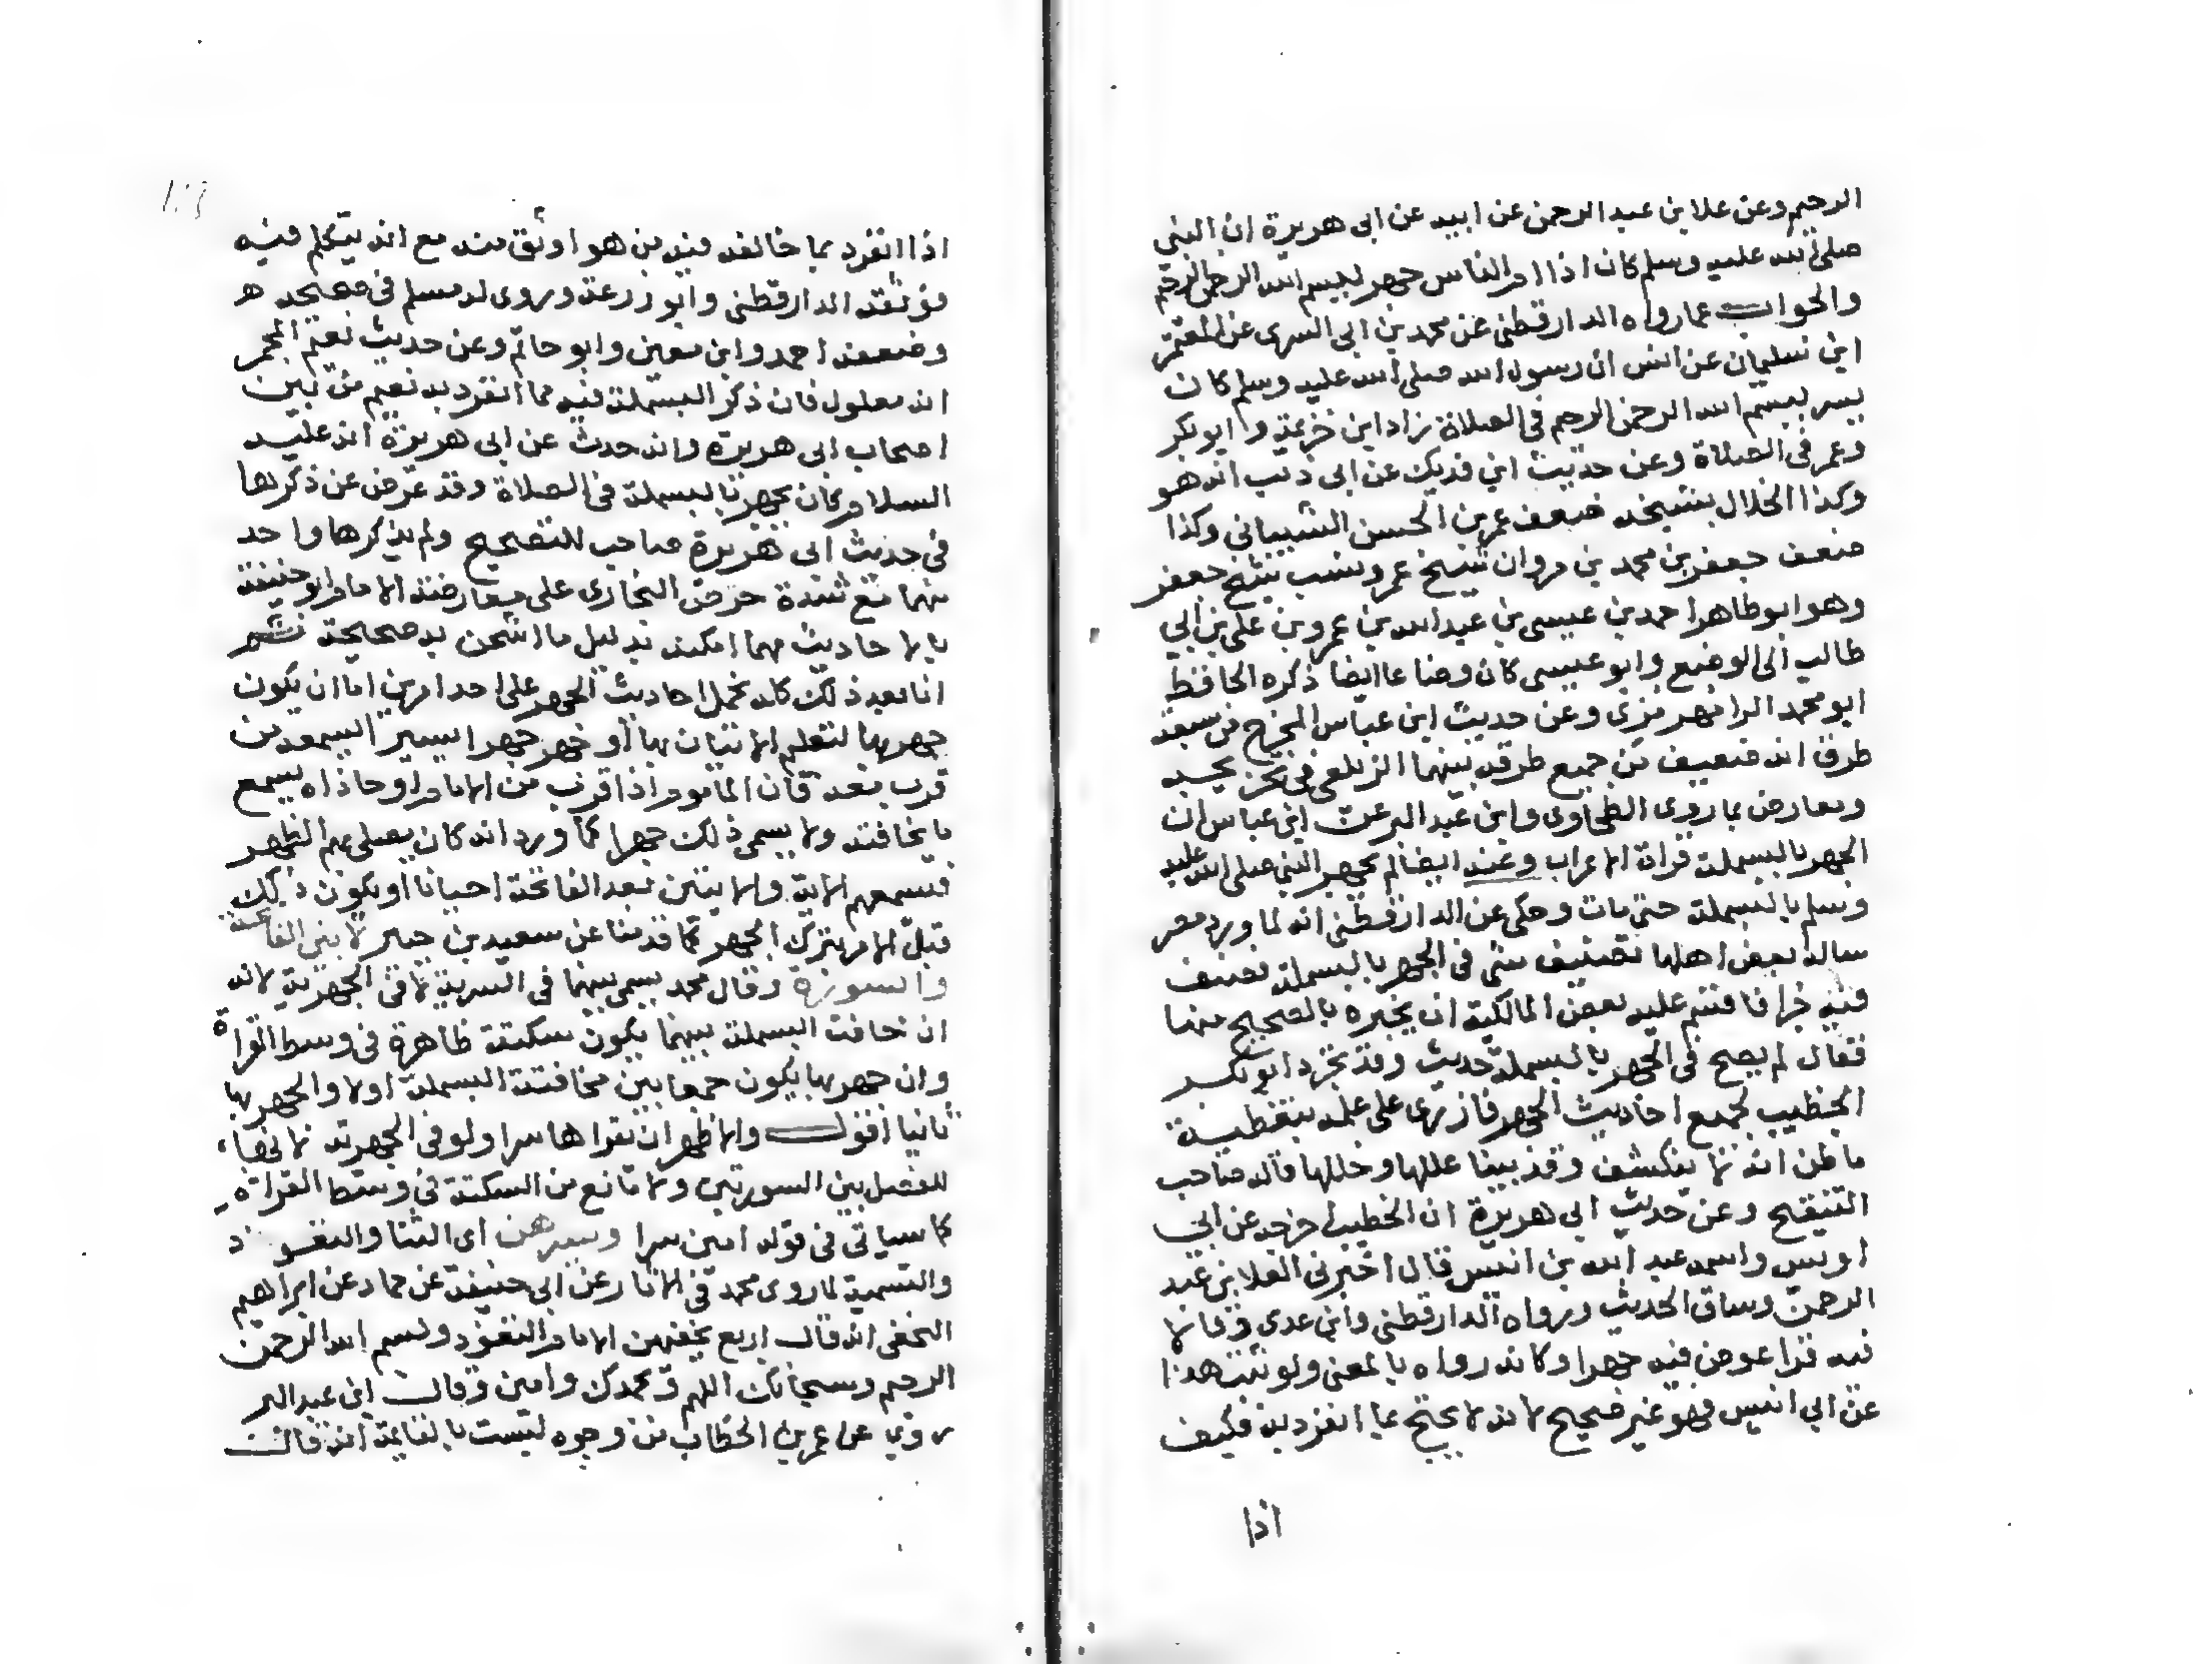 الرحيم وعن علا بن عبد الرحمن عن ابيه عن ابى هريرة ان النبى
صلى الله عليه وسلم كان اذا ام الناس جهر ببسم الله الرحمن الرحيم
والجواب عما رواه الدارقطنى عن محمد بن ابى السرى عن المعتمر
ابن سليمان عن انس ان رسول الله صلى الله عليه وسلم كان
يسر ببسم الله الرحمن الرحيم فى الصلاة زاد ابن خزيمة وابو بكر
وعمر فى الصلاة وعن حديث ابن فديك عن ابى ذئب انه هو
وكذا الخلال بشيخه ضعف عمر بن الحسن الشيبانى وكذا
ضعف جعفر بن محمد بن مروان شيخ عمر ونسب شيخ جعفر
وهو ابو طاهر احمد بن عيسى بن عبد الله بن عمرو بن على بن ابى
طالب الى الوضع وابو عيسى كان وضاعا ايضا ذكره الحافظ
ابو محمد الرامهرمزى وعن حديث ابن عباس المخرج من سبعة
طرق انه ضعيف من جميع طرقه بينها الزيلعى فى تخريجه
ومعارض بما روى الطحاوى وابن عبد البر عن ابن عباس ان
الجهر بالبسملة قراة الاعراب وعنه ايضا لم يجهر النبى صلى الله عليه
وسلم بالبسملة حتى مات وحكى عن الدارقطنى انه لما ورد مصر
ساله بعض اهلها تصنيف شى فى الجهر بالبسملة فصنف
فيه جزا فاقسم عليه بعض المالكية ان يخبره بالصحيح منها
فقال لم يصح فى الجهر بالبسملة حديث وقد تجرد ابو بكر
الخطيب لجمع احاديث الجهر فازرى على علمه بتغطية
ما ظن انه لا ينكشف وقد بينا عللها وخللها قاله صاحب
التنقيح وعن حديث ابى هريرة ان الخطيب اخرجه عن ابى
اويس واسمه عبد الله بن انيس قال اخبرنى العلا بن عبد
الرحمن وساق الحديث ورواه الدارقطنى وابن عدى وقالا
فيه قرا عوض فيه جهرا وكانه رواه بالمعنى ولو ثبت هذا
عن ابى انيس فهو غير صحيح لانه لا يحتج بما انفرد به فكيف
اذا
اذا انفرد بما خالفه فيه من هو اوثق منه مع انه يتكلم فيه
فوثقه الدارقطنى وابو زرعة وروى له مسلم فى صحيحه
وضعفه احمد وابن معين وابو حاتم وعن حديث نعيم المجمر
انه معلول فان ذكر البسملة فيه مما انفرد به نعيم من بين
اصحاب ابى هريرة وانه حدث عن ابى هريرة انه عليه
السلام كان يجهر بالبسملة فى الصلاة وقد عرض عن ذكرها
فى حديث ابى هريرة صاحب التصحيح ولم يذكرها واحد
منهما مع شدة حرص البخارى على معارضة الامام ابو حنيفة
بالاحاديث مهما امكنه بدليل ما اشحن به صحيحه ثم
انا بعد ذلك كله نحمل احاديث الجهر على احد امرين اما ان يكون
جهر بها لتعليم الاتيان بها او جهر جهرا يسيرا يسمعه من
قرب بعد فان الماموم اذا قرب من الامام او حاذاه يسمع
ما يخافته ولا يسمى ذلك جهرا كما ورد انه كان يصلى بهم الظهر
فيسمعهم الاية والايتين بعد الفاتحة احيانا او يكون ذلك
قبل الامر بترك الجهر كما قدمنا عن سعيد بن جبير لا بين الفاتحة
والسورة وقال محمد يسمى بينهما فى السرية لا فى الجهرية لانه
ان خافت البسملة بينهما يكون سكتة ظاهرة فى وسط القراة
وان جهر بها يكون جمعا بين مخافتة البسملة اولا والجهر بها
ثانيا اقول والاظهر ان يقراها سرا ولو فى الجهرية لانها
للفصل بين السورتين ولا مانع من السكتة فى وسط القراة
كما سياتى فى قوله امين سرا وسرهن اى الثنا والتعوذ
والتسمية لما روى محمد فى الاثار عن ابى حنيفة عن حماد عن ابراهيم
النخعى انه قال اربع يخفيهن الامام التعوذ وبسم الله الرحمن
الرحيم وسبحانك اللهم وبحمدك وامين وقال ابن عبد البر
روى عن عمر بن الخطاب من وجوه ليست بالقايمة انه قال